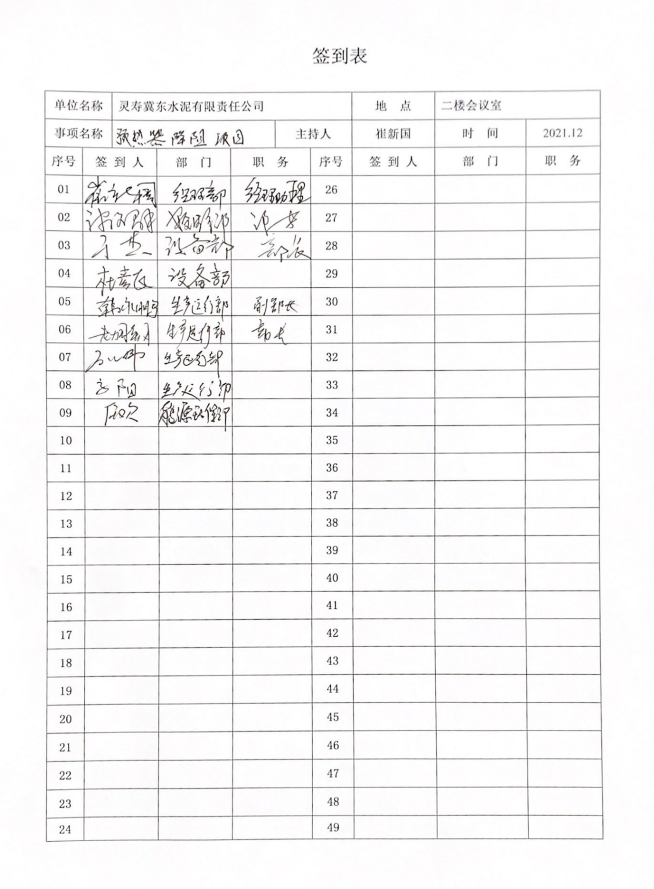 签到表
单位名称 灵寿冀东水泥有限责任公司 地 点 二楼会议室
事项名称 预热器降阻 主持人 崔新国 时 间 2021.12
序号 签 到 人 部 门 职 务 序号 签 到 人 部 门 职 务
01 经理部 经理助理 26
02 27
03 于杰 设备部 部长 28
04 设备部 29
05 生产运行部 副部长 30
06 生产运行部 部长 31
07 32
08 生产运行部 33
09 能源环保部 34
10 35
11 36
12 37
13 38
14 39
15 40
16 41
17 42
18 43
19 44
20 45
21 46
22 47
23 48
24 49